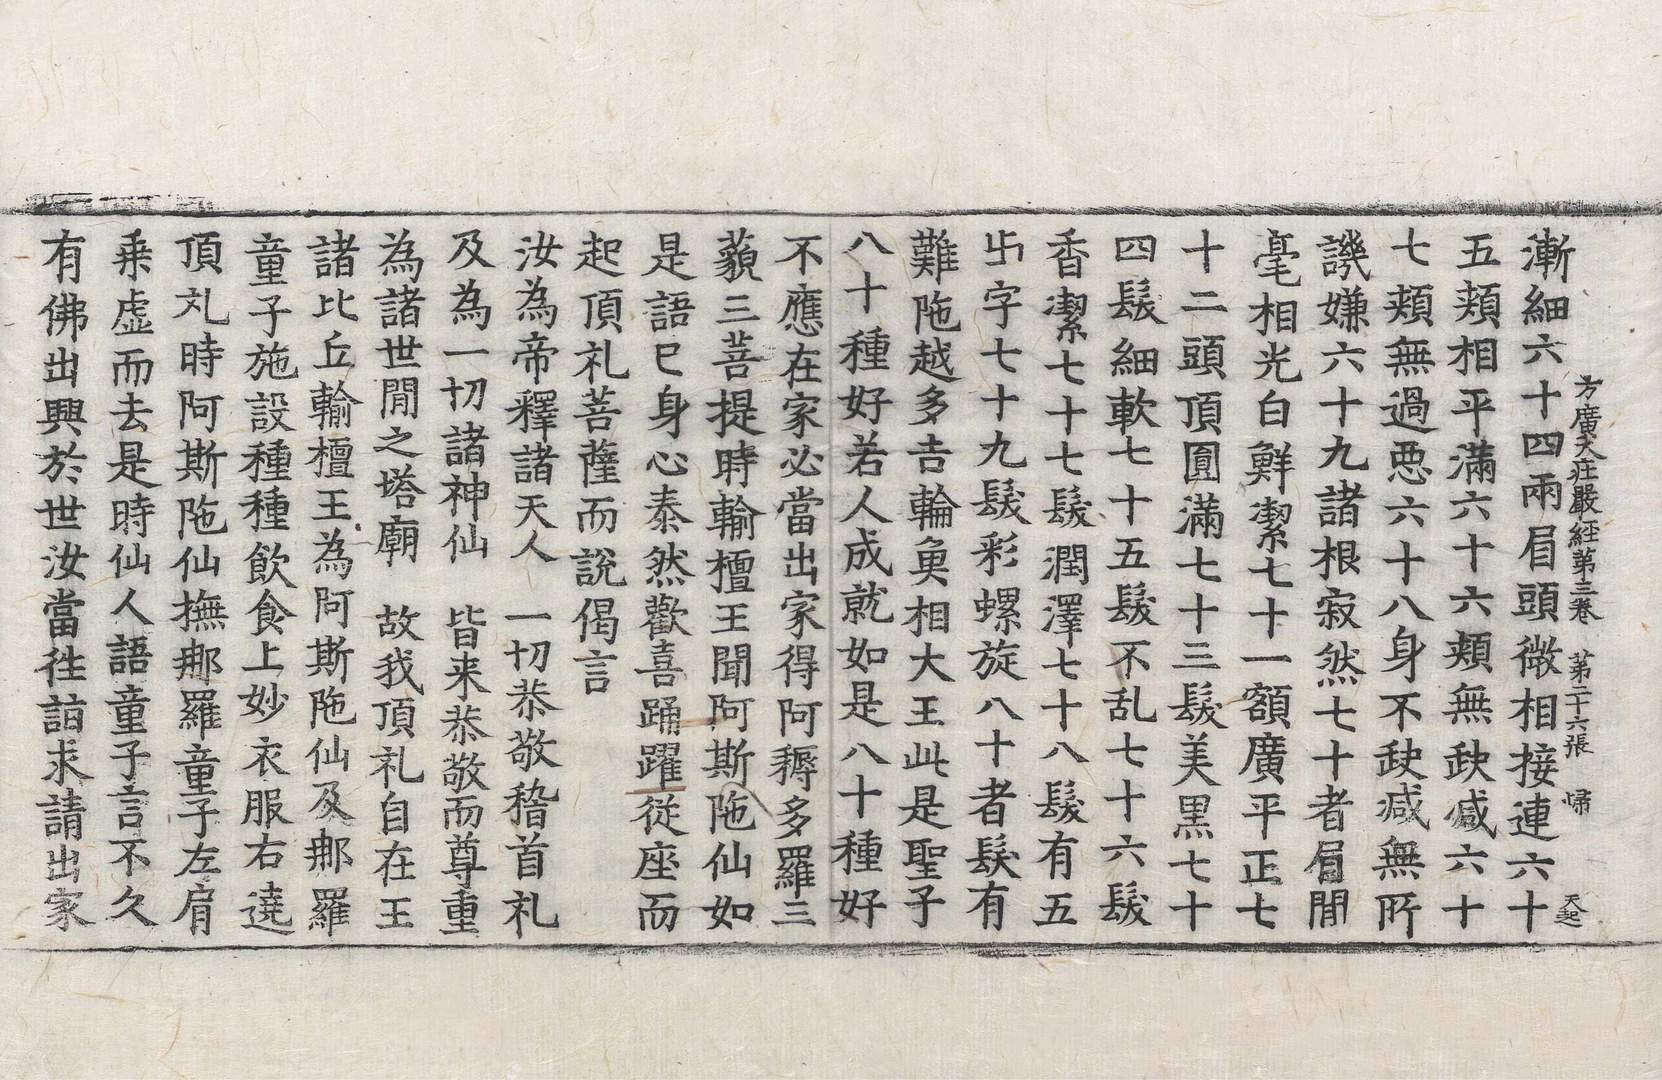 方廣大荘嚴経苐三卷 苐二十六張 㷌 天起
漸細六十四兩眉頭微相接連六十
五頰相平滿六十六頰無缺减六十
七頰無過惡六十八身不缺减無所
譏嫌六十九諸根寂然七十者眉閒
毫相光白鮮潔七十一額廣平正七
十二頭頂圓滿七十三髮美黒七十
四髮細軟七十五髮不乱七十六髮
香潔七十七髮潤澤七十八髮有五
卐字七十九髮彩螺旋八十者髮有
難陁越多吉輪魚相大王此是聖子
八十種好若人成就如是八十種好
不應在家必當出家得阿耨多羅三
藐三菩提時輸檀王聞阿斯陁仙如
是語已身心泰然歡喜踊躍從座而
起頂礼菩薩而說偈言
汝為帝釋諸天人 一切恭敬稽首礼
及為一切諸神仙 皆来恭敬而尊重
為諸世閒之塔廟 故我頂礼自在王
諸比丘輸檀王為阿斯陁仙及那羅
童子施設種種飲食上妙衣服右遶
頂礼時阿斯陁仙撫那羅童子左肩
乗虚而去是時仙人語童子言不久
有佛出興於世汝當往詣求請出家